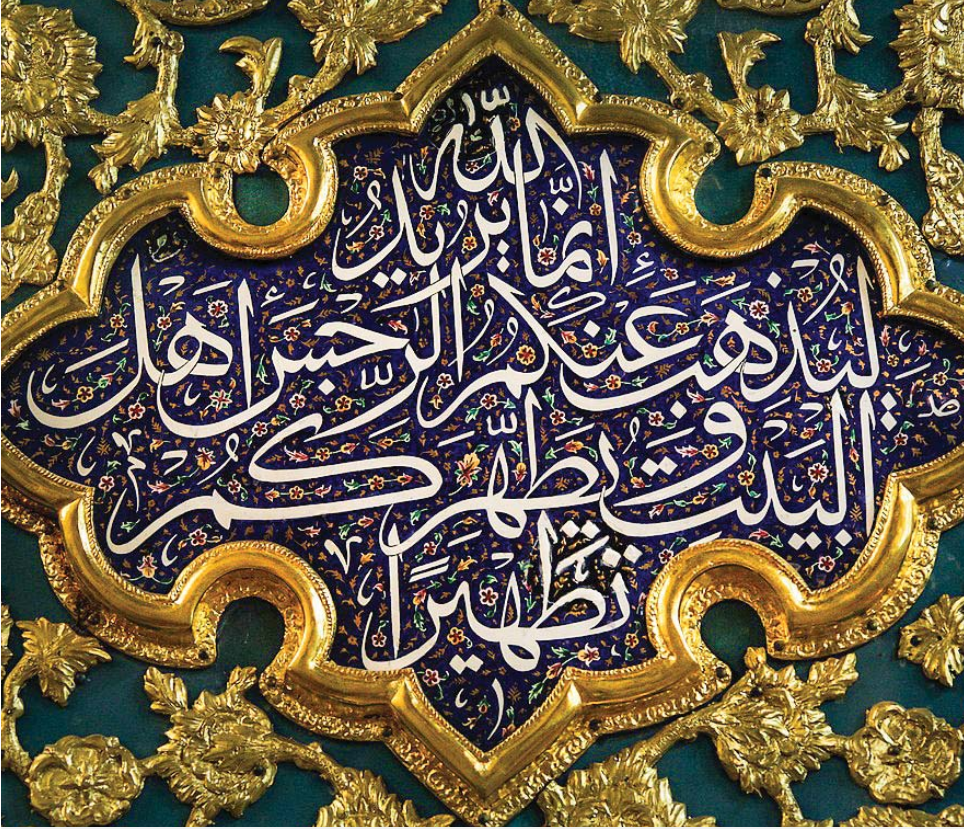 إنّما يريد الله
ليُذهِبَ عَنكُم الرّجسَ اهلَ
البيت و يُطَهِّرَكُم
تطهيرًا